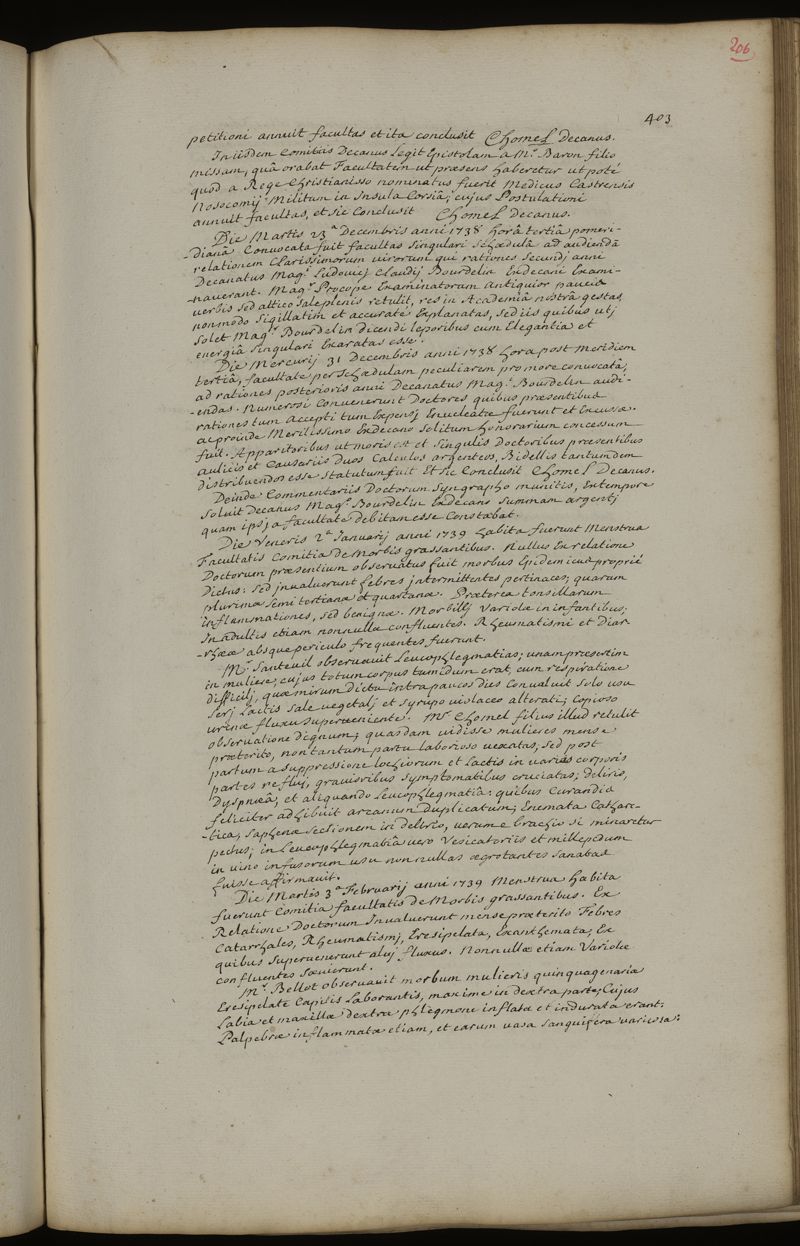 206
403
petitioni annuit facultas et ita conclusit Chomel Decanus.
In iisdem Comitiis Decanus Legit Epistolam a Mro. Baron filio
missam, quâ orabat Facultatem ut præsens haberetur utpoté
quod a Rege Christianisso nominatus fuerit Medicus Castrensis
Nosocomij Militum in Insula Corsiâ; cujus Postulationi
annuit facultas, et sic Conclusit Chomel Decanus.
Die Martis 23a Decembris anni 1738 horâ tertiâ pomeri-
-dianâ Convocata fuit facultas Singulari Schædulâ ad audiendâ
relationem Clarissimorum virorum qui rationes Secundj anni
Decanatus Magri. Ludovicj Claudij Bourdelin Exdecani Exami-
-naverant. Magr. Procope Examinatorum antiquior paucis
verbis sed attico Sale plenis retulit, res in Academiâ nostrâ gestas,
nonmodo Sigillatim et accuratè Explanatas, sed iis quibus utj
solet Magr. Bourdelin dicendi leporibus cum Elegantia et
energiâ singulari Exaratas esse.
Die Mercurij 31 Decembris anni 1738 hora post meridiem
tertiâ, facultate per Schædulam peculiarem pro more convocatâ,
ad rationes posterioris anni Decanatus Magri. Bourdelin audi-
-endas. Numerosi Convenerunt Doctores quibus præsentibus
rationes tum accepti tum Expensj Enucleatæ fuerunt et Excussæ.
ac proinde Meritissimo Exdecano Solitum honorarium concessum
fuit. Apparitoribus ut moris est et singulis Doctoribus præsentibus
aulicis et Causariis Duos Calculos argenteos, Bidellis tantumdem
distribuendos esse Statutum fuit Et sic Conclusit Chomel Decanus.
Deinde Commentariis Doctorum Syngrapho munitis, Extempore
Soluit Decanus Magro. Bourdelin Exdecano Summam argentj
quam ipsj a facultate debitam esse Constabat.
Die Veneris 2a Januarij anni 1739 habita fuerunt Menstrua
Facultatis Comitia De Morbis grassantibus. Nullus Ex relatione
Doctorum præsentium observatus fuit morbus Epidemicus propriè
Dictus: Sed jnvaluerunt febres jntermittentes pertinaces; quarum
plurimæ Semitertianæ et quartanæ. Præterea tonsillarum
inflammationes, sed benignæ. Morbillj Variolæ in infantibus;
In adultis etiam nonnullæ confluentes. Rheumatismi et Diar
-rhææ absque periculo frequentes fuerunt.
Mr. Santeuil observauit Leucophlegmatias; unam præsertim
in muliere, cujus totum corpus tumidum erat, cum respiratione
difficilj, quæ mirum dictu intra paucos dies Convaluit Solo usu
serj Lactis Sale vegetalj et syrupo violaceo alterati; Copioso
urinæ fluxu superveniente. Mr. Chomel filius illud retulit
observatione dignum; quasdam vidisse mulieres mense
præterito, non tantum partu laborioso vexatas, sed post
partum a suppressione lochiorum et Lactis in varias corporis
partes refluj, gravioribus symptomatibus cruciatas; delirio,
Dyspnæâ, et aliquando Leucophlegmatiâ: quibus Curandis
feliciter adhibuit arcanum duplicatum; Enemata Cathar-
-tica, saphenæ sectionem in delirio, verum e brachio si minaretur
pectus; in Leucophlegmatiâ vero Vesicatoriis et millepedum
in vino infusorum usu nonnullas ægrotantes Sanatas
fuisse affirmavit.
Die Martis 3a Februarij anni 1739 Menstrua habita
fuerunt Comitia facultatis De Morbis grassantibus. Ex
Relatione Doctorum Invaluerunt mense præterito Febres
Catarrhales, Rheumatismj, Eresipelata, Exanthemata; Ex
quibus Supervenerunt alvj fluxus. Nonnullæ etiam Variolæ
confluentes sævierunt.
Mr. Bellot observauit morbum mulieris quinquagenariæ
Eresipelate Capitis Laborantis, maxime in dextra parte; Cujus
Labia et maxilla dextra phlegmone inflata et indurata erant:
Palpebræ inflammatæ etiam, et earum vasa sanguifera varicosa: